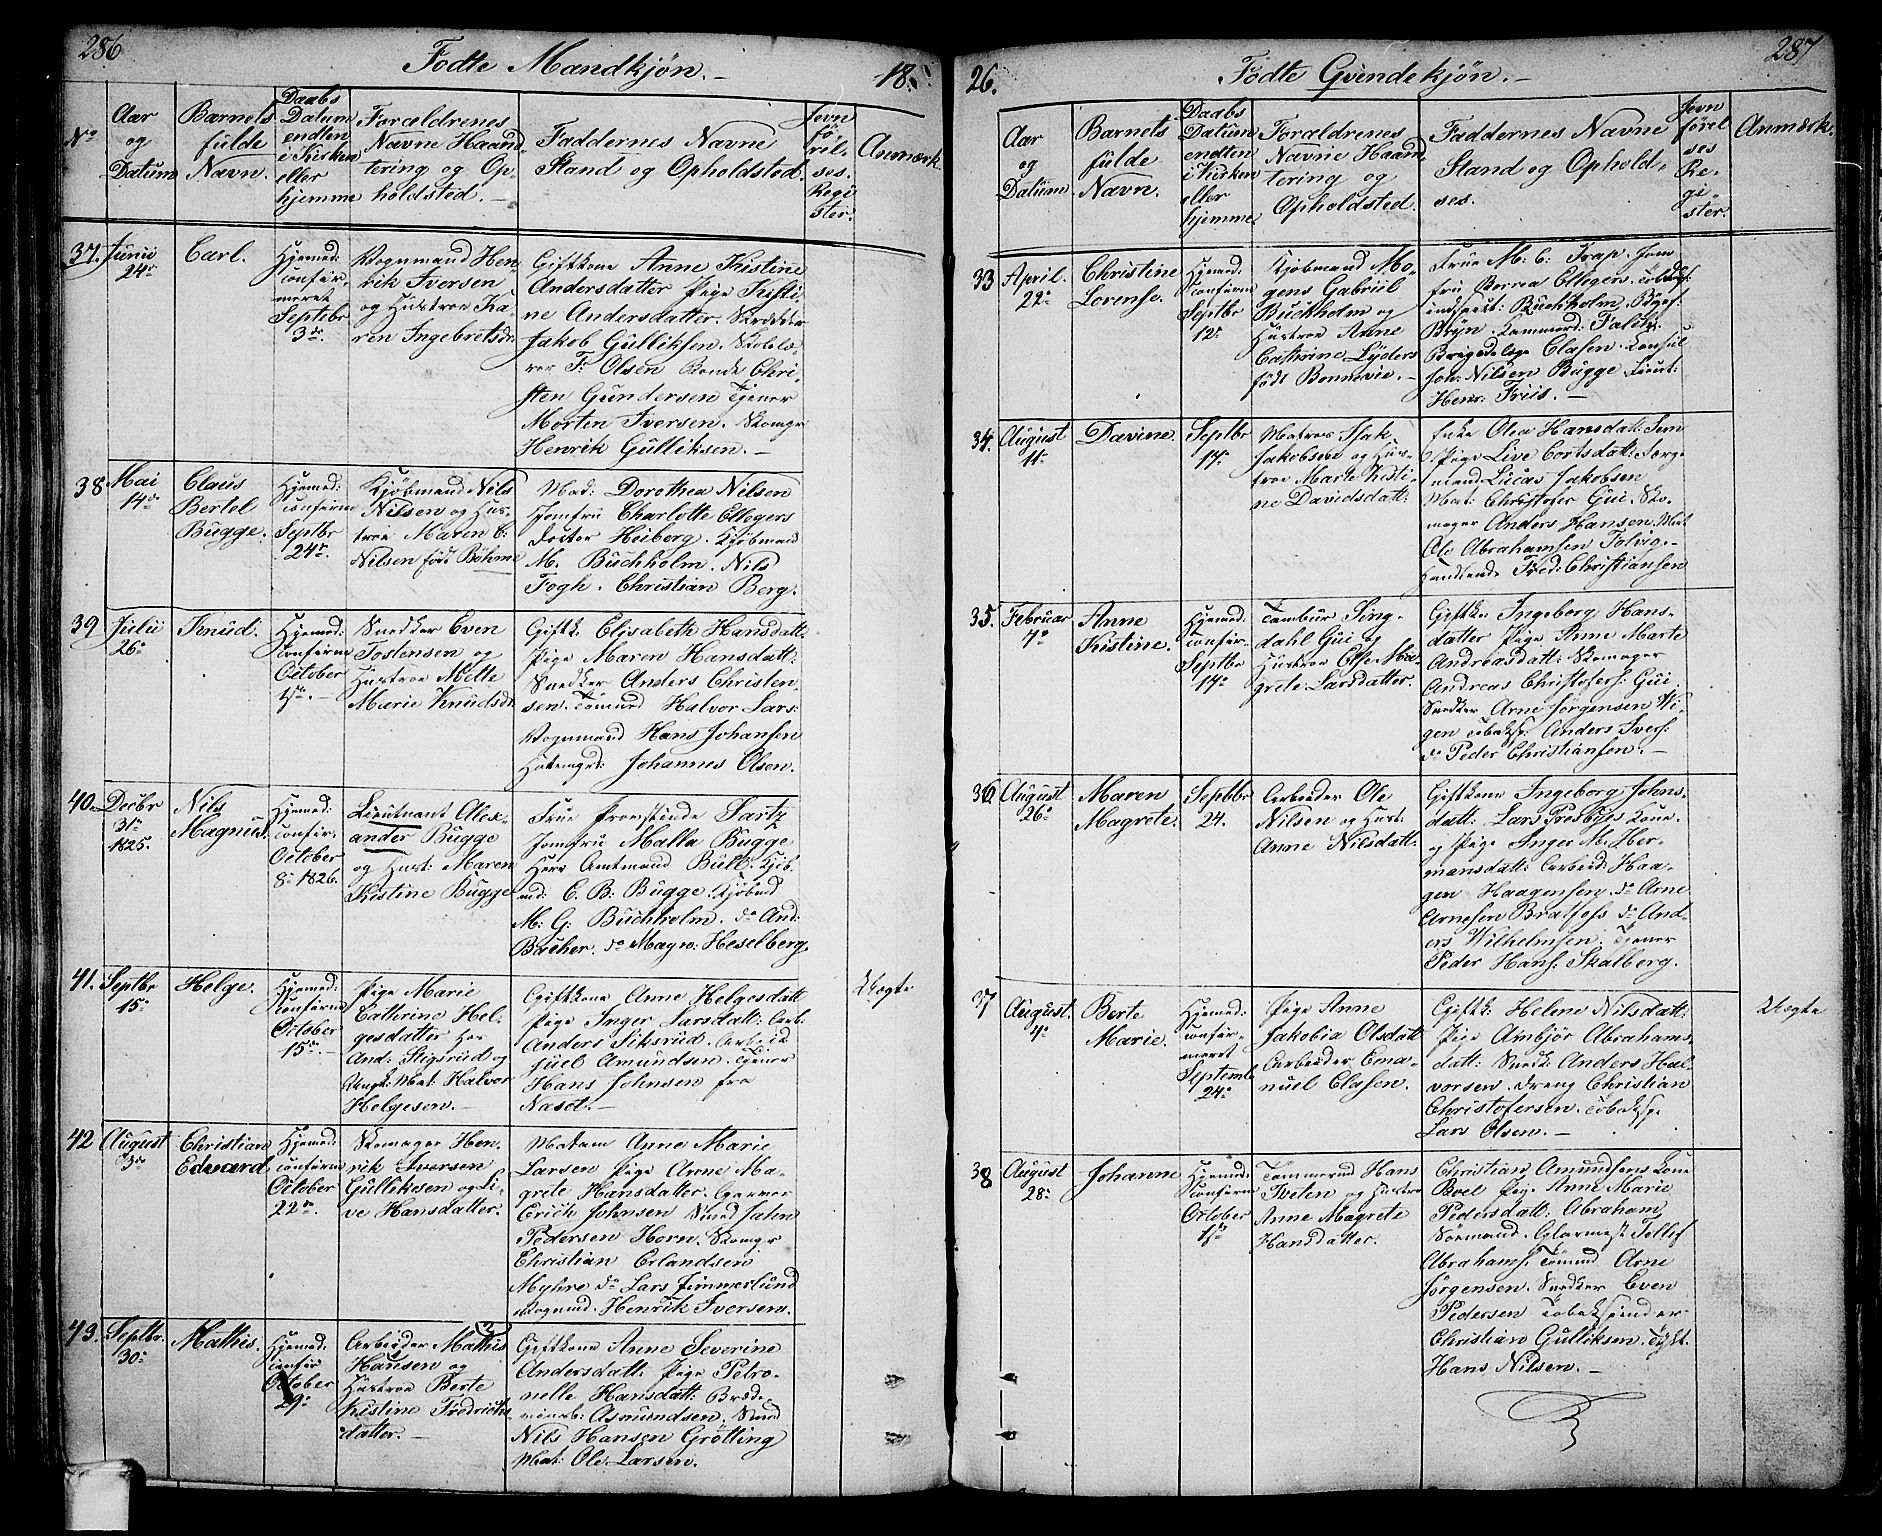 286
Fødte Mandkjøn.-
18
No
Aar
og
Datum
Barnets
fulde
Navn.
Daabs
Datum
endten
i Kirken
eller
hjemme
Foræeldrenes
Navne Haand
tering og Op-
holdsted.-
Faddernes Navne
Stand og Opholdsted.
Jevn
fö-
rel-
ses
Regi
ster.
Anmærk.
37.
Junii
24de
Carl.
Hjemed:
confir-
meret
Septbr
3de.
Vognmand Hen-
rik Iversen
og Hustroe Ka-
ren Ingebretsdr.
Giftkone Anne Kistine
Andersdatter Pige Kisti-
ne Andersdatter. Skrædder
Jakob Gulliksen. Skolelæ-
rer F: Olsen Bonde Chri-
sten Gundersen Tjener
Morten Iversen. Skomgr
Henrik Gulliksen.-
38
Mai
14de
Claus
Bertel
Bugge.
Hjemed:
confirm
Septbr
24de
Kjøbmand Nils
Nilsen og Hus-
troe Maren C:
Nilsen født Bøhme
Mad: Dorothea Nilsen
Jomfru Charlotte Ellegers
Docter Heiberg. Kjøbmand
M. Buchholm. Nils
Fogh. Christian Berg.
39
Julii
26de
Knud.
Hjemed:
confirm
October
1ste.-
Snedker Even
Tostensen og
Hustroe Mette
Marie Knudsdr
Giftk. Elisabeth Hansdatt:
Pige Maren Hansdatt:
Snedker Anders Christen-
sen. Tømmd Halvor Lars:
Vognmand Hans Johansen
Hatemgr: Johannes Olsen.
40.
Decbr
31te
1825.
Nils
Magnus.
Hjemed:
confir-
October
8de 1826.
Lieutnant Alex-
ander Bugge
og Hust: Maren
Kistine Bugge
Frue Provstinde Sartz
Jomfru Malla Bugge
Herr Amtmand Bull. Kjöb-
md: C. B: Bugge. Kjöbmd
M: G: Buchholm. do And:
Backer. do Magn: Heselberg.
41.
Septbr
15de
Helge.
Hjemed:
Konfirm
October
15de.-
Pige Marie
Cathrine Hel-
gesdatter hos
And: Stigsrud og
Ungk: Mat: Halvor
Helgesen.-
Giftkone Anne Helgesdatt
Pige Inger Larsdatt: Arb:
Anders Siksrud. Arbeid
Juel Amundsen. Tjener
Hans Johnsen fra
Næset.-
Uægte
42
August
3de
Christian
Edvard.
Hjemed:
confirm
October
22de.
Skomager Hen-
rik Iversen
Gulliksen og Li-
ve Hansdatter.
Madam Anne Marie
Larsen Pige Anne Ma-
grete Hansdatter. Garver
Erich Johnsen Smed John
Pedersen Horn. Skomgr
Christian Erlandsen
Myhre do Lars Fimmerlund
Vognmd. Henrik Iversen.
43.
Septbr.
30te
Mathis.
Hjemed:
confir
October
29de
Arbeider Mathis
Hansen og
Hustroe Berte
Kistine Fredriks
datter.-
Giftkone Anne Severine
Andersdatt: Pige Petro-
nelle Hansdatt: Bræde-
Asmundsen. Smed
Nils Hansen Grötting
Mat: Ole Larsen.
26.
Fødte Qvindekjøn.-
287
Aar
og
Datum
Barnets
fulde
Navn.
Daabs
Datum
endten
i Kirken
eller
hjemme.
Forældrenes
Navne Haand
tering og
Opholdsted.
Faddernes Navne
Stand og Opholds-
ses.
Jevn
förel
ses
Re-
gi
ster.
Anmærk.
33
April.
22de
Christine
Lorense.
Hjemed:
confirm
Septbr
12te
Kjøbmand Mo-
gens Gabriel
Buckholm og
Hustroe Anne
Cathrine Lyders
født Bonnevie.-
Frue M. C: Trap. Jom
fru Benna Ellegers.
Buchholm.
Bryn. Kammerd: Falck.
Clasen. Konsul
Joh: Nilsen Bugge. Lieut:
Henr: Friis.-
34.
August
11te
Davine.
Septbr
17de
Matros Isak
Jakobsen og Hus-
troe Marte Kisti-
ne Davidsdatt:
Enke Olea Hansdatt: Jom
Pige Live Cortsdatt: Færge
mand Lucas Jakobsen
Mat: Christofer Gui. Sko-
mager Anders Hansen. Mat
Ole Abrahamsen
Handlende Fred: Christiansen
35.
Februar
7de
Anne
Kistine.
Hjemed:
confir-
Septbr
17de
Tambur Sing-
dahl Gui og
Hustroe Else Ma-
grete Larsdatter.
Giftko Ingeborg Hans-
datter Pige Anne Marte
Andreasdatt: Skomager
Andreas Christofers: Gui.
Snedker Arne Jørgensen Vi-
gen Tobaksp: Anders Ivers:
do Peder Christiansen.-
36.
August
26de
Maren
Magrete.
Septbr
24.
Arbeider Ole
Nilsen og Hust:
Anne Nilsdatt:
Giftkone Ingeborg Johns-
datt: Lars Presbyes Kone
og Pige Inger M. Her-
mansdatt: Arbeid: Haa-
gen Haagensen. do Arne
Arnesen Bratfoss do And-
ers Wilhelmsen. Tjener
Peder Hans: Skalberg.
37
August.
4de
Berte
Marie.
Hjemed:
confir-
meret
Septembr
24de
Pige Anne
Jakobia Olsdatt
Arbeider Ema-
nuel Clasen.
Giftk: Helene Nilsdatt:
Pige Ambjör Abrahams
datt: Smed: Anders Hal-
vorsen. Dreng Christian
Christofersen. Tobaksp.
Lars Olsen.-
Uægte
38
August
28de
Johanne
Hjemed:
confirm
October
1ste
Tömmermd Hans
Tveten og Hustroe
Anne Magrete
Hansdatter.
Christian Amundsens Kone
Boel Pige Anne Marie
Pedersdatt: Abraham
Sörmand. Glarmest Tellef
Abrahams: Tömmd Arne
Jörgensen. Snedker Even
Pedersen Tobakspinder
Christian Gulliksen.
Hans Nilsen.-